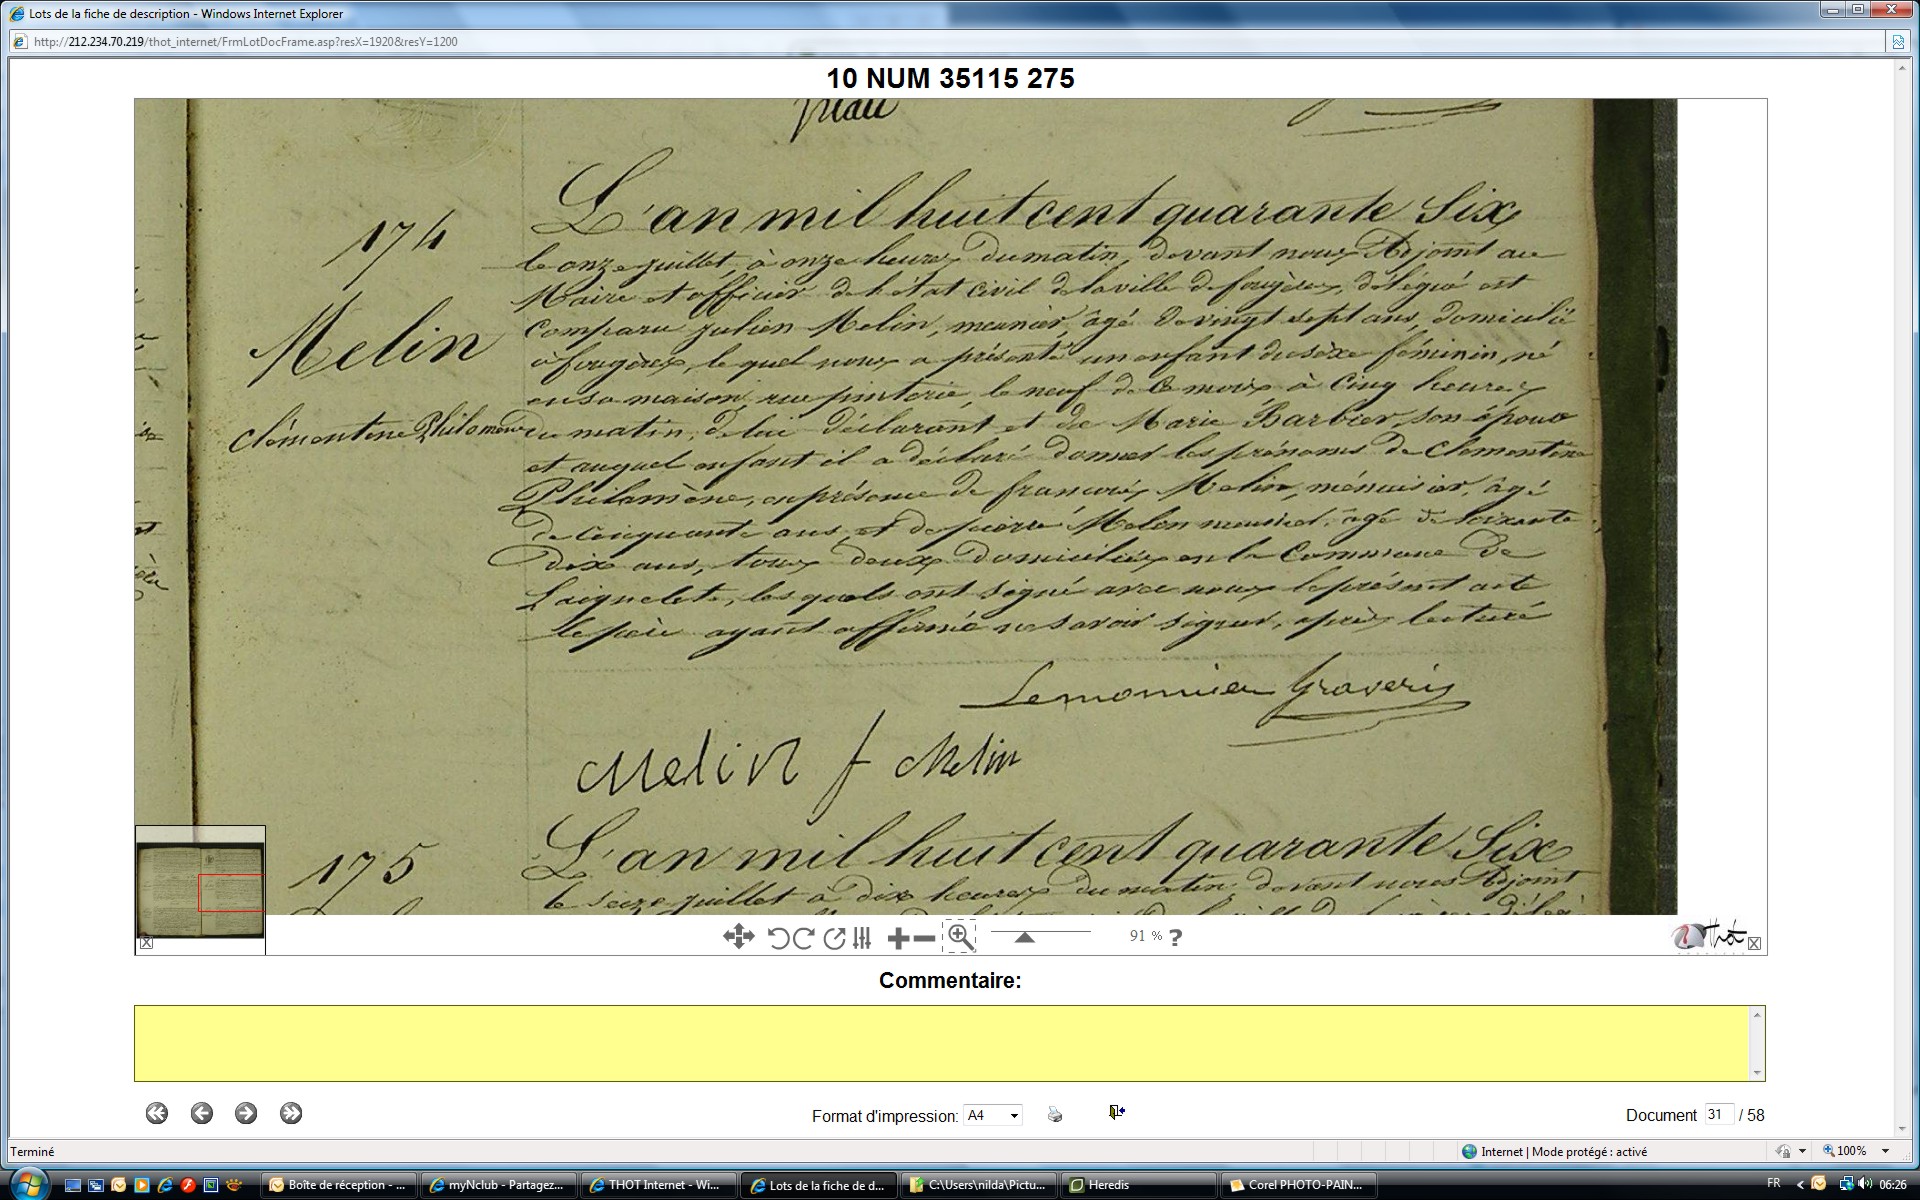 Lots de la fiche de description - Windows Internet Explorer
http://212.234.70.219/thot_internet/FrmLotDocFrame.asp?resX=1920&resY=1200
10 NUM 35115 275
174
Melin
Clémentine Philomène
L'an mil huit cent quarante Six
le onze juillet, à onze heures du matin, devant nous Adjoint au
Maire et officier de l'état civil de la ville de fougères, délégué est
comparu julien Melin, meunier, âgé de vingt sept ans, domicilié
à fougères, lequel nous a présenté un enfant du sèxe féminin, né
en sa maison, rue pinterie, le neuf de ce mois à cinq heures
du matin, de lui déclarant et de Marie Barbier, son épouse
et auquel enfant il a déclaré donner les prénoms de Clementine
Philomène, en présence de françois Melin, ménuisier, âgé
de cinquante ans, et de pierre Melin meunier, âgé de soixante
Dix ans, tous deux domiciliés en la Commune de
Laignelet, les quels ont signé avec nous le présent acte
le père ayant affirmé ne savoir signer, après lecture
Lemonnier Graveris
Melin f Melin
175
L'an mil huit cent quarante Six
le seize juillet à dix heures du matin, devant nous Adjoint
91 % ?
Thot
Commentaire:
Format d'impression: A4
Document 31 / 58
Terminé
Internet | Mode protégé : activé
100%
Boîte de réception - ...
myNclub - Partagez...
THOT Internet - Wi...
Lots de la fiche de d...
C:\Users\nilda\Pictu...
Heredis
Corel PHOTO-PAIN...
FR
06:26